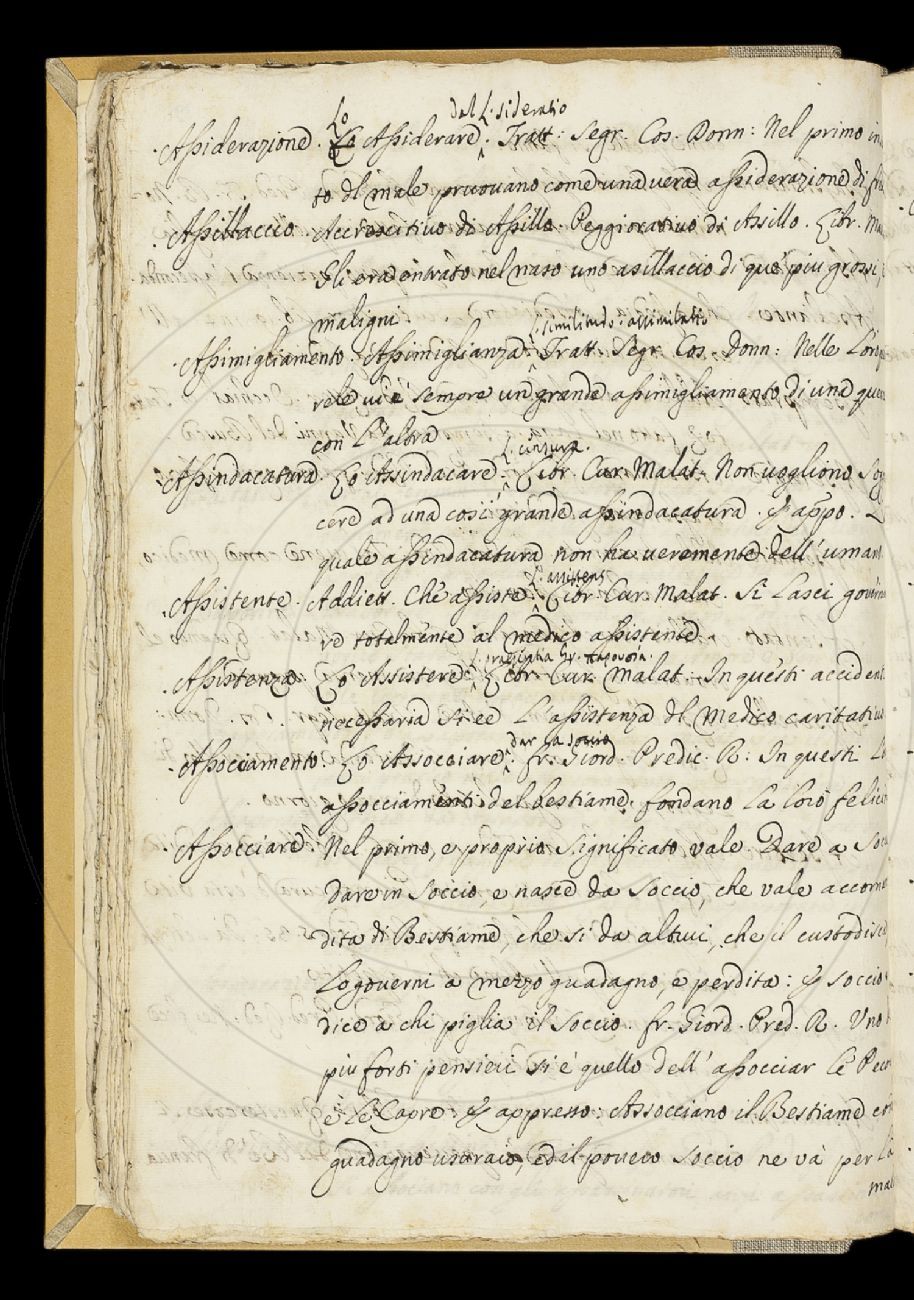 Lo dal L. sideratio
Assiderazione. Lo Assiderare. Tratt: Segr. Cos. Donn: Nel primo in
to dl male pruovano come una vera assiderazione di
Assillaccio. Accrescitivo di Assillo. Peggiorativo di Assillo. Libr.
Gli era entrato nel naso uno asillaccio di que' più grossi,
maligni
L. similitudo: assimilatio
Assimigliamento. Assimiglianza. Tratt. Segr. Cos. Donn: Nelle
rele vi è sempre un grande assimigliamento di una
con L'altra
L. censura.
Assindacatura. Lo Assindacare. Libr. Cur. Malat. Non vogliono sog
cere ad una così grande assindacatura. & appo.
quale assindacatura non ha veremente dell'uman
L. assistens
Assistente. Addiett. Che assiste. Libr. Cur. Malat. Si Lasci governa
re totalmente al medico assistente
Assistenza Lo Assistere. Libr. Cur. Malat. In questi acciden
necessaria si ee L'assistenza dl Medico caritativ
dar la soccio
Assocciamento. Lo Assocciare. fr. Giord. Predic. R: In questi Lo
assocciamenti del bestiame fondano La Loro felici
Assocciare. Nel primo, e proprio significato, vale Dare a Soc
Dare in soccio, e nasce da soccio, che vale accoman
dita di Bestiame, che si da altrui, che il custodisc
Lo governi a mezzo guadagno, e perdita: & soccio
dice a chi piglia il soccio. fr. Giord. Pred. R. Uno
più forti pensieri si è quello dell'assocciar Le Pec
e Le Capre: & appresso: Assocciano il Bestiame con
guadagno usuraio, ed il povero soccio ne và per La
mal